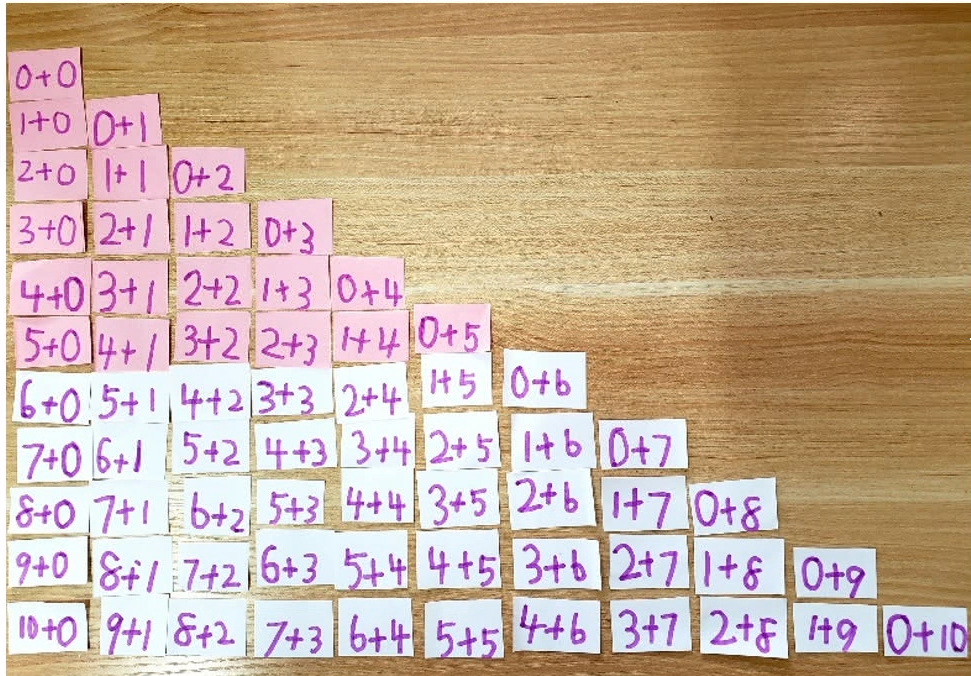 0+0
1+0 0+1
2+0 1+1 0+2
3+0 2+1 1+2 0+3
4+0 3+1 2+2 1+3 0+4
5+0 4+1 3+2 2+3 1+4 0+5
6+0 5+1 4+2 3+3 2+4 1+5 0+6
7+0 6+1 5+2 4+3 3+4 2+5 1+6 0+7
8+0 7+1 6+2 5+3 4+4 3+5 2+6 1+7 0+8
9+0 8+1 7+2 6+3 5+4 4+5 3+6 2+7 1+8 0+9
10+0 9+1 8+2 7+3 6+4 5+5 4+6 3+7 2+8 1+9 0+10